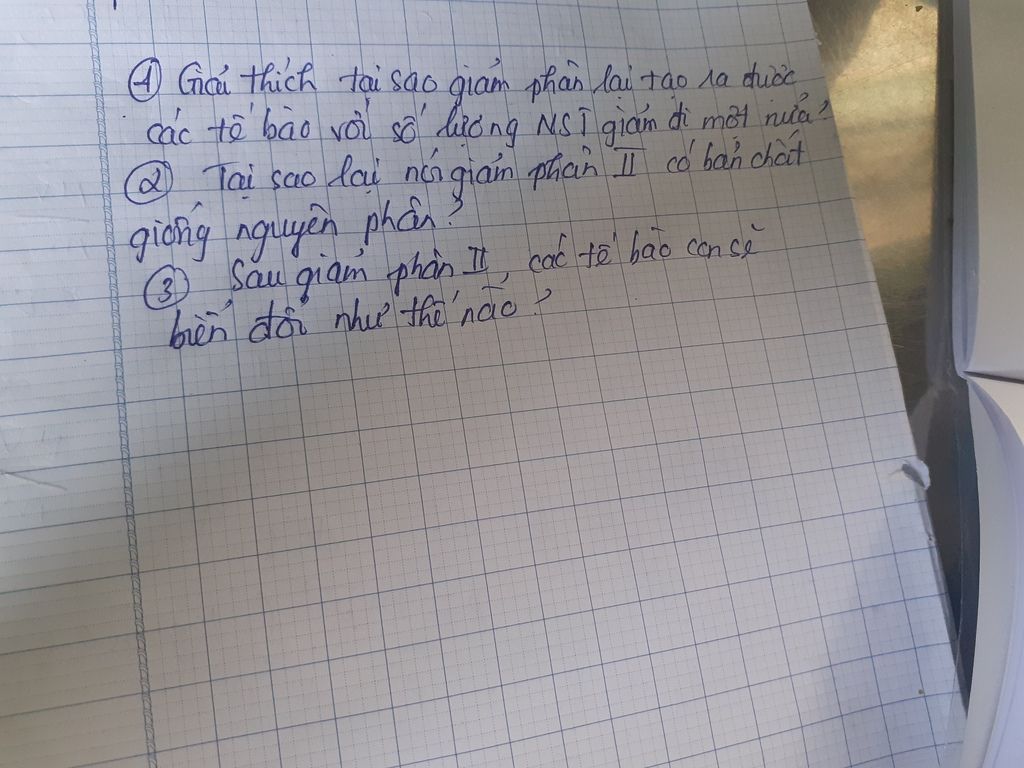 ① Giải thích tại sao giảm phân lại tạo ra được
các tế bào với số lượng NST giảm đi một nửa?
② Tại sao lại nói giảm phân II có bản chất
giống nguyên phân?
③ Sau giảm phân II, các tế bào con sẽ
biến đổi như thế nào?